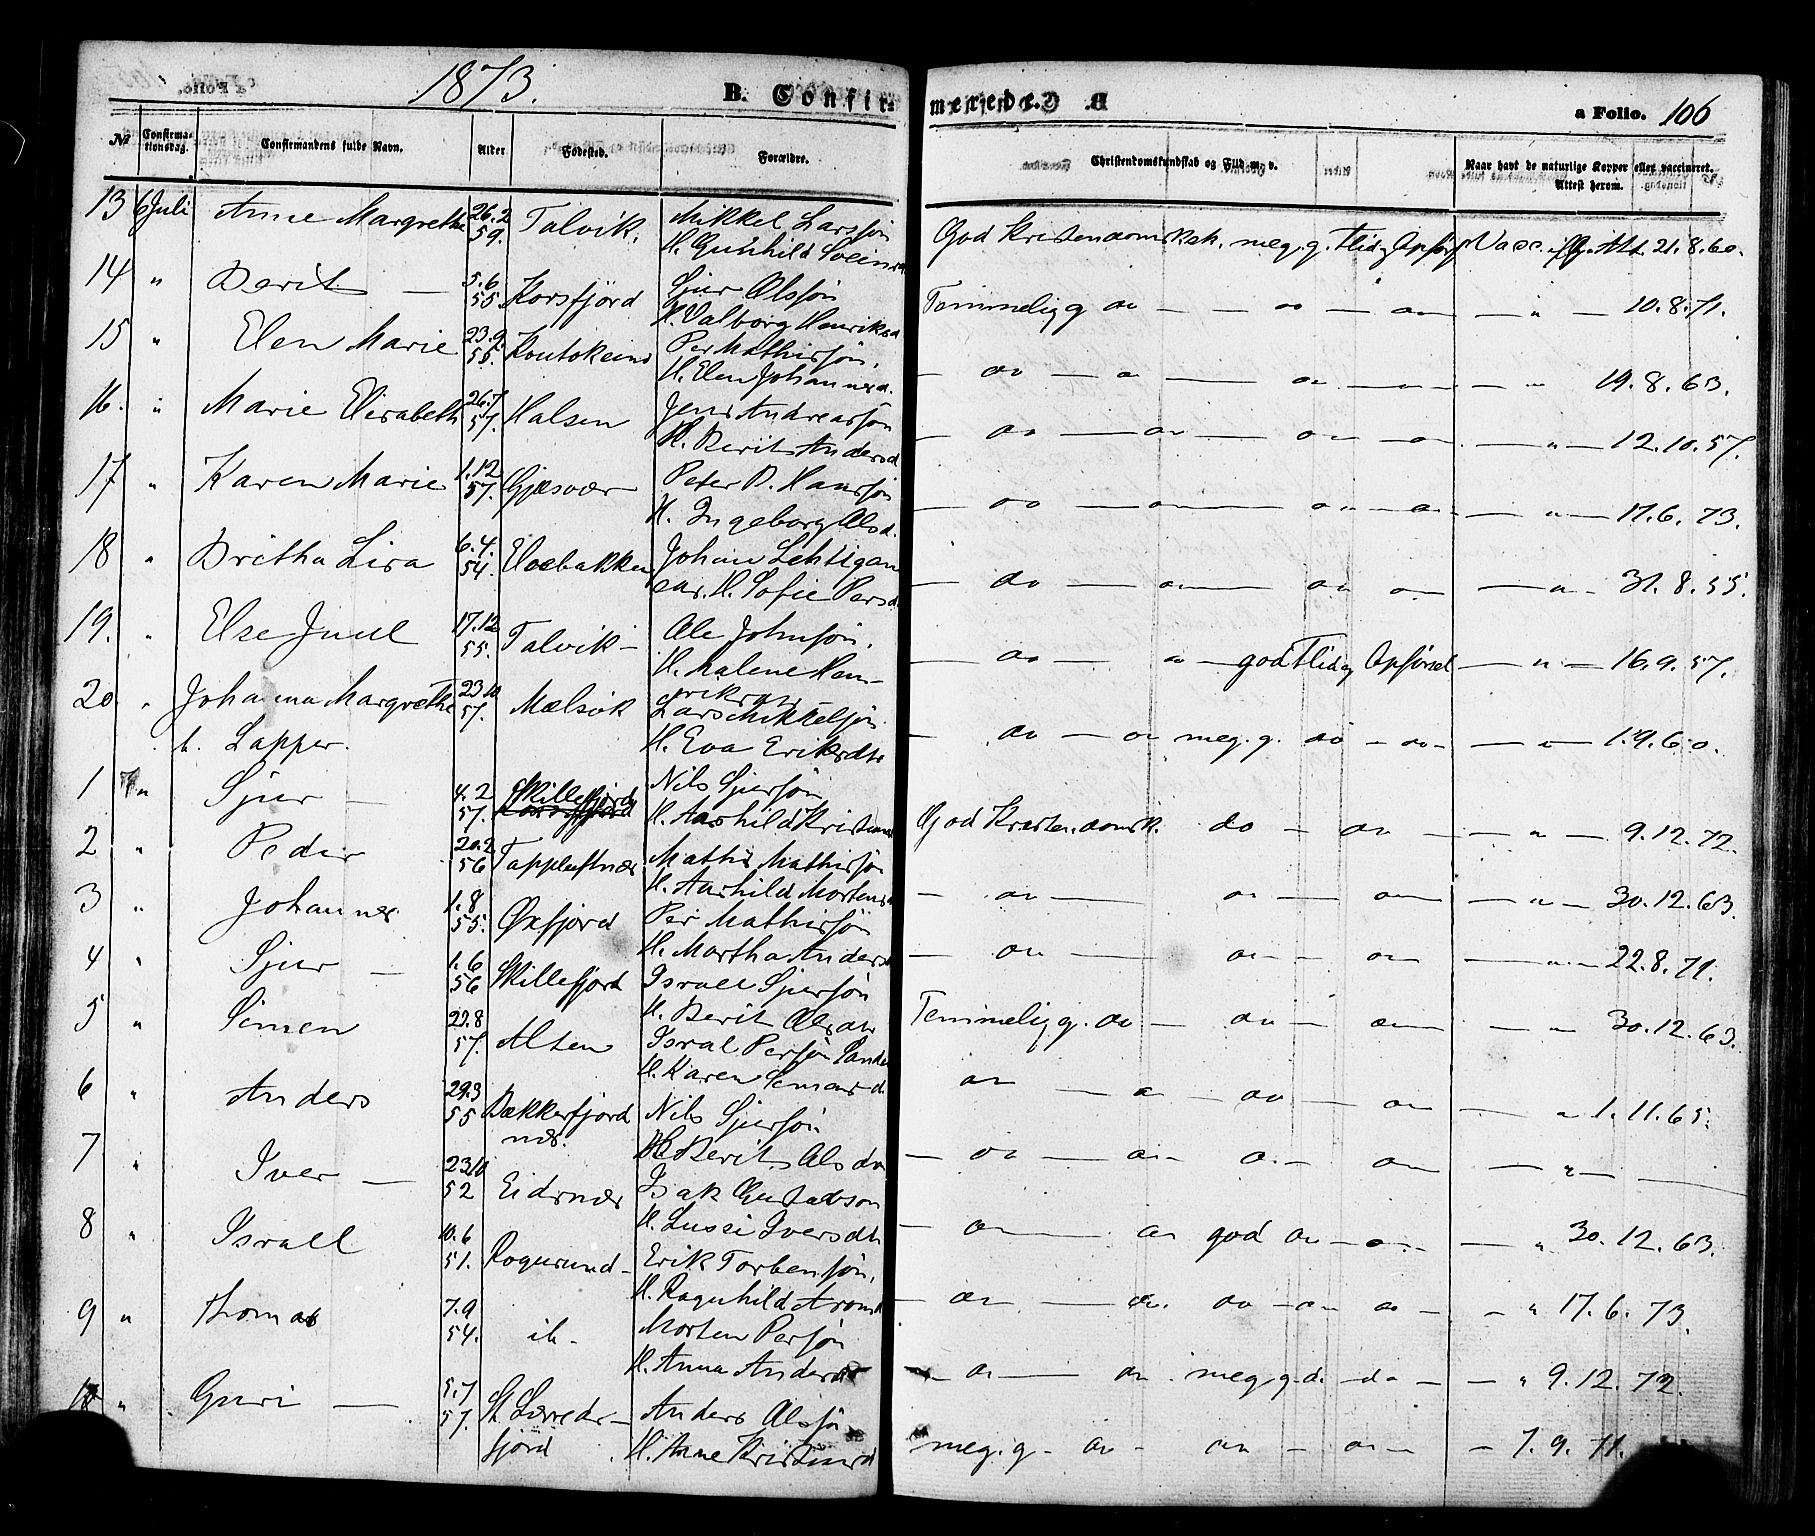 1873.
B. Confir-
merede.
a Folio. 106
№
Confirma-
tionsdag.
Confirmandens fulde Navn.
Alder
Fødested.
Forældre.
Christendomskundskab og Flid m. v.
Naar havt de naturlige Kopper eller vaccineret.
Attest herom.
13 6 Juli Anne Margrethe 26.2 59. Talvik. Mikkel Larssøn
H. Gunhild God Kristendomsksk. meg. g. Flid og Opførs Vacc. Att. 21.8.60.
14 " Berit — 5.6 55. Korsfjord Sjur Olssøn
H. Valborg Henriksd Temmelig g do — — do — do — " — 10.8.71.
15 " Elen Marie 23.9. 55. Koutokeino Per Mathissøn,
H. Elen Johannesd. — do — do — do — do — " 19.8.63.
16. " Marie Elisabeth 26.7 57. Halsen Jens Andreassøn
H. Berit Andersd — do — do — do — do — " — 12.10.57.
17 " Karen Marie 1.12 57. Gjæsvær — Peter P. Hanssøn
H. Ingeborg Olsd. — do — do — do — do — " — 17.6.73.
18 " Britha Lisa 6.4. 54. Elvebakken Johan Lehtigan
H. Sofie Persd. — do — do — do do — — " — 31.8.55.
19. " Else Juul 17.12 55. Talvik — Ole Johnsøn,
H. Malene Hen-
riksen — do — do — god Flid og Opførsel — " — 16.9.57.
20 " Johanna Margrethe 23.10 57. Mælsvik Lars Mikkelsøn
H. Eva Eriksdtr — do — do meg. g. do — do — — " — 1.9.60.
b. Lapper.
1 " Sjur — 4.2 57. Skillefjord Nils Sjursøn
H. Aashild God Kristendomsk. do — do — — " — 9.12.72.
2 " Peder 20.2 56 Mathis Mathissøn
H. Aashild Mortensd — do — do — do — " — 30.12.63.
3 " Johannes 1.8 55. Øxfjord Per Mathissøn
H. Martha Andersd — do — do — do — " — 22.8.71.
4 " Sjur — 1.6 56 Skillefjord Israel Sjursøn
H. Berit Olsdtr Temmelig g. do — do — do — " 30.12.63.
5 " Simen 29.8 57. Alten Isral Persøn
H. Karen do — do — do — do — " 1.11.65.
6 " Anders 29.3 55 Bækkerfjord
næs. Nils Sjursøn
H. Berit Olsdtr — do — do — do — do — " —
7 " Iver — 23.10 52 Eidsnæs Isak Gustavson
H. Lussi Iversdtr — do — do god do — do — — " 30.12.63.
8 " Israel 10.6 51. Rognsund — Erik Torbensøn,
H. Ragnhild — do — do. do — do do — — " 17.6.73.
9 " Thomas 7.9 54. ib — Morten Persøn
H. Anna Andersd — do — do meg. g. do — do — — " 9.12.72.
10 " Guri — 5.7 57. St. Lerreds-
fjord Anders Olssøn
H. Anne meg. g — do — do — do — — 7.9.71.